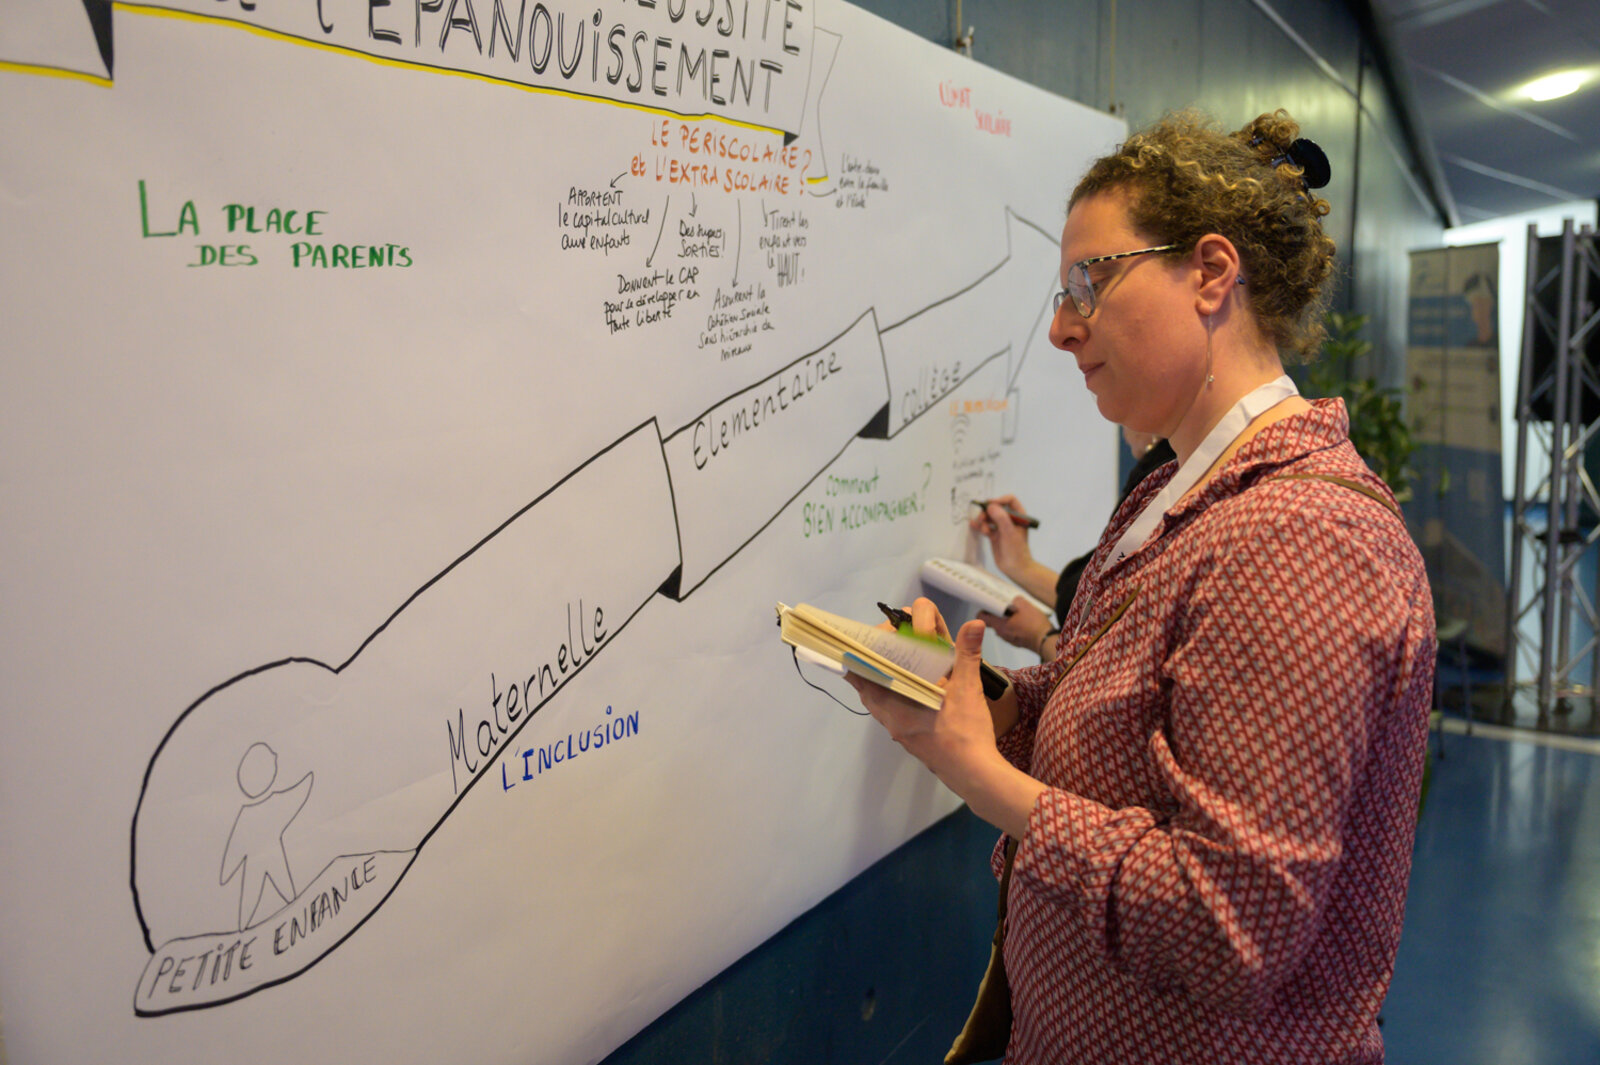 L'ÉPANOUISSEMENT
LE PERISCOLAIRE ?
et L'EXTRA SCOLAIRE
APPORTENT
le capital culturel
aux enfants
Donnent le CAP
pour se développer en
toute liberté
Des supers
SORTIES !
Assurent la
Cohésion sociale
Sans hiérarchie de
niveaux
Tirent les
enfant vers
le
HAUT !
entre la famille
et l'élève
CLIMAT
SCOLAIRE
LA PLACE
DES PARENTS
COLLÈGE
Elementaire
comment
BIEN ACCOMPAGNER ?
Maternelle
L'INCLUSION
PETITE ENFANCE